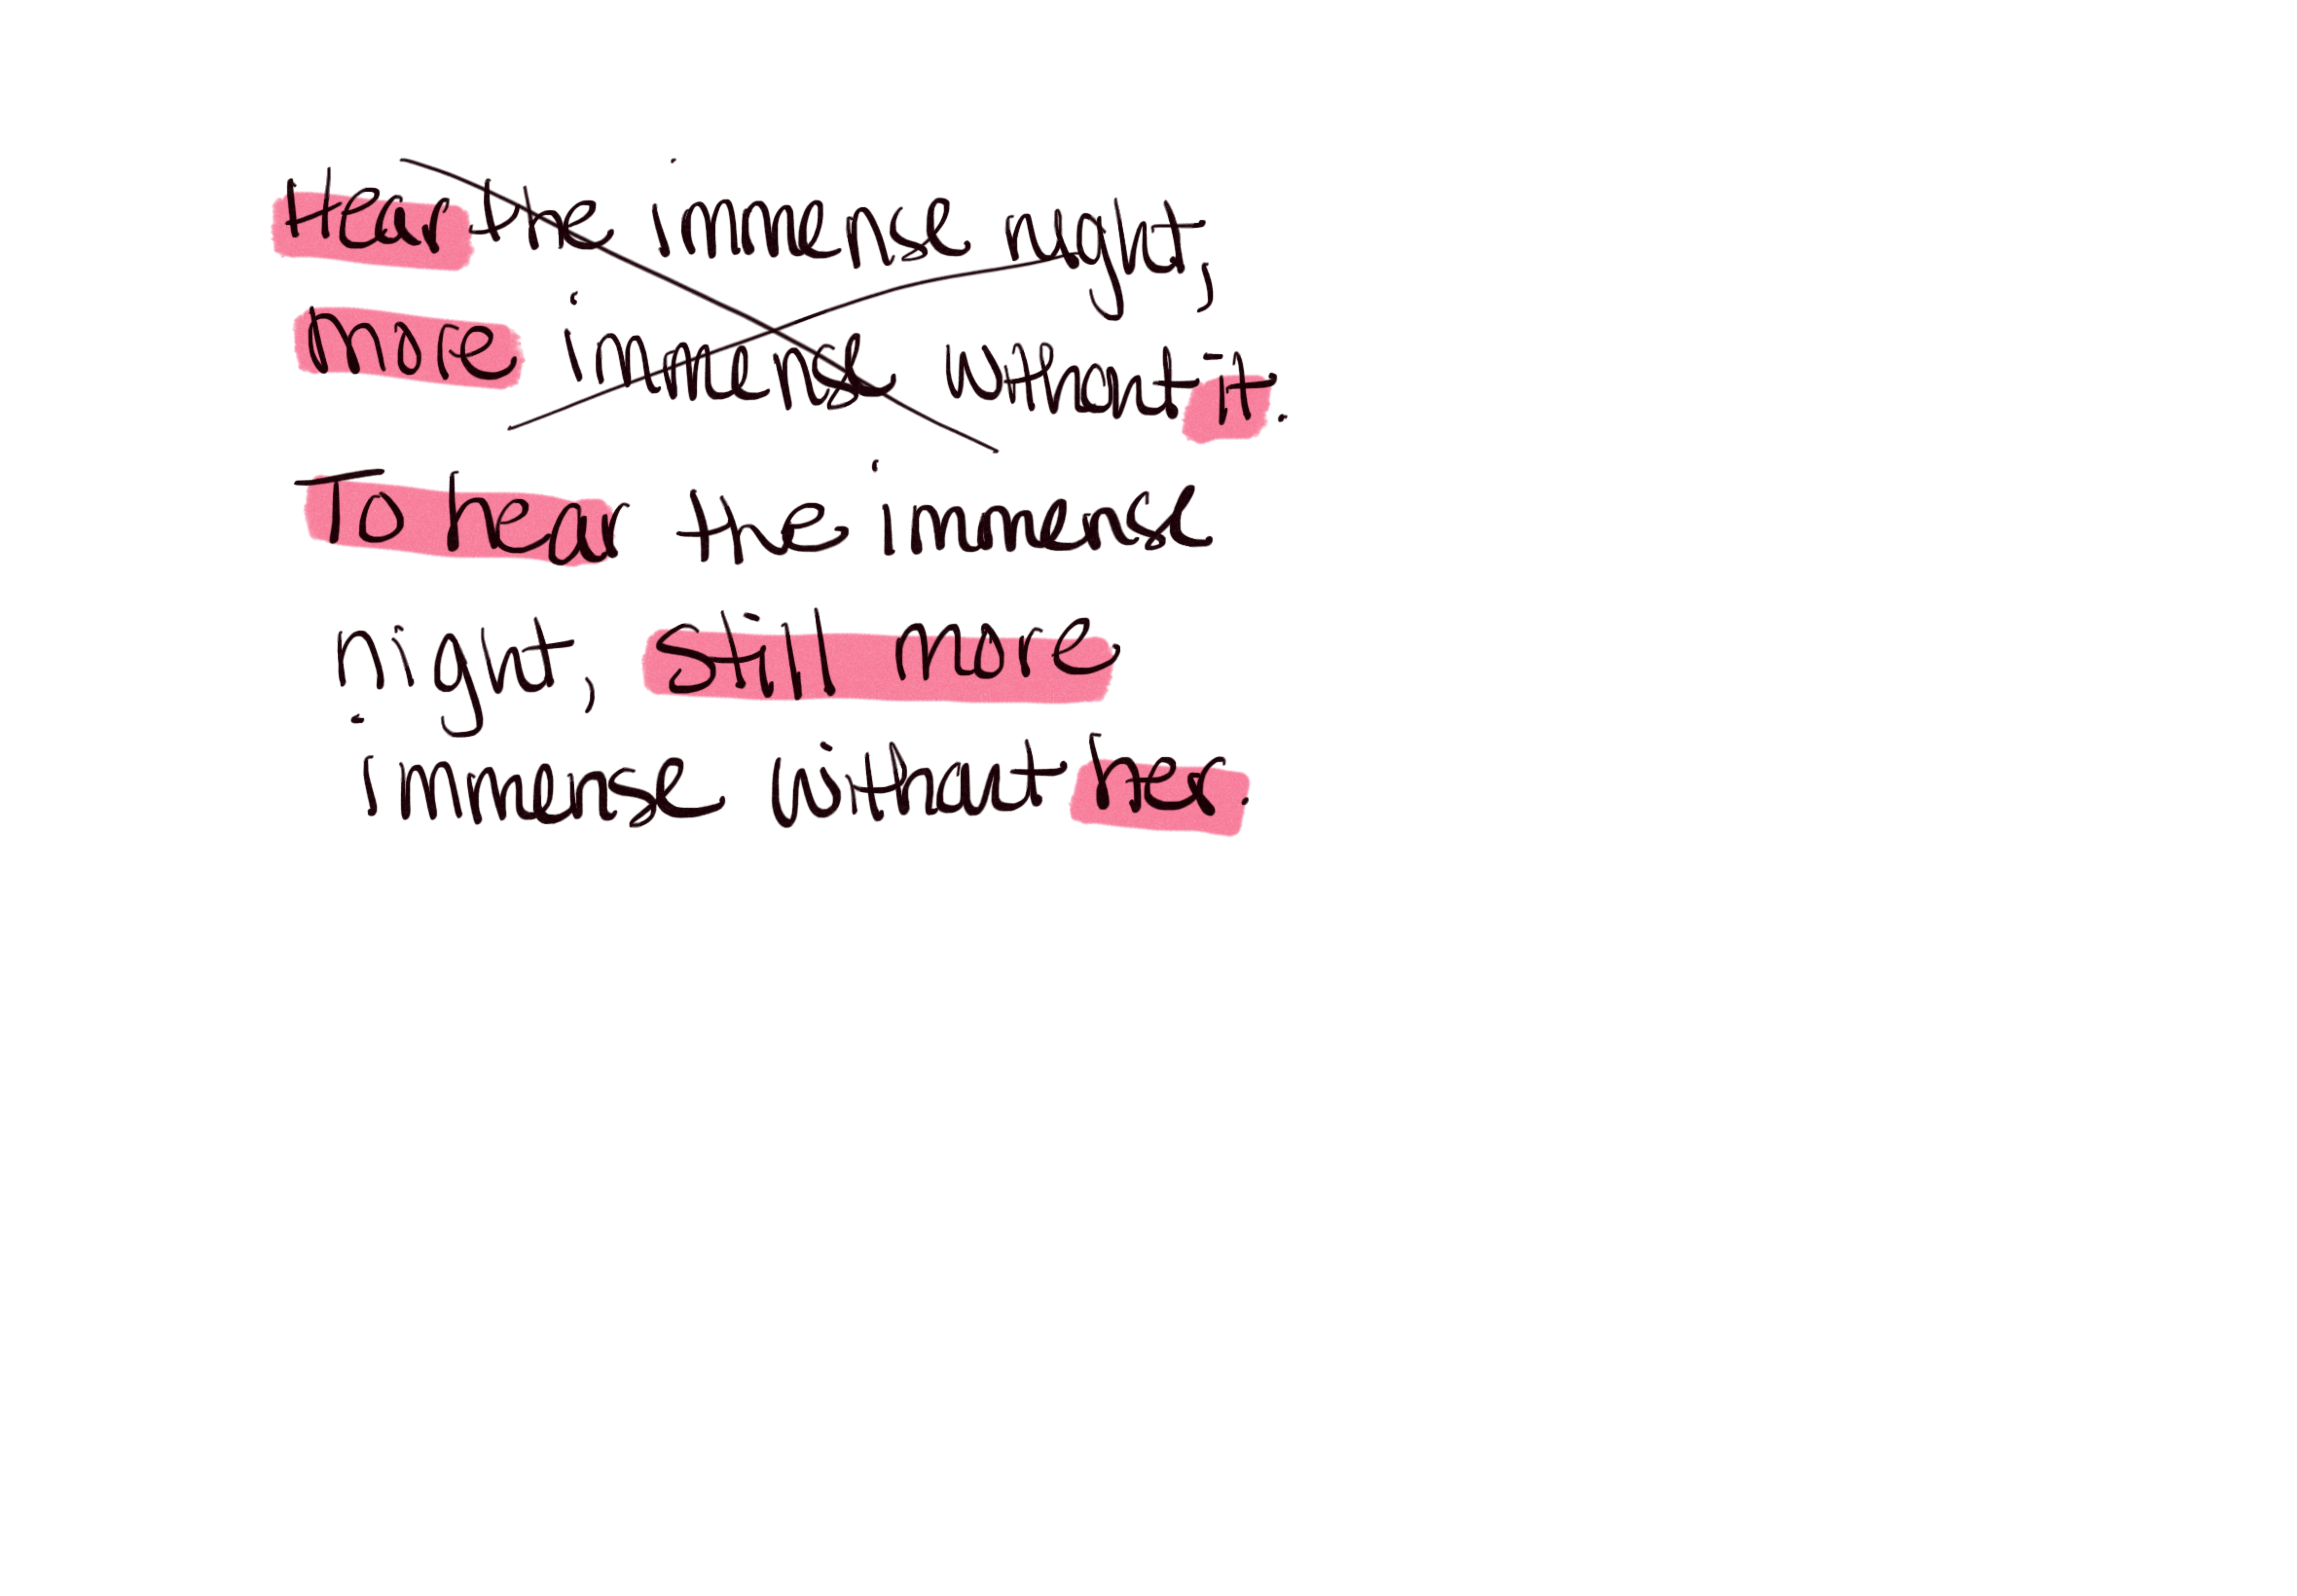 Hear the immense night,
more immense without it.
To hear the immense
night, still more
immense without her.